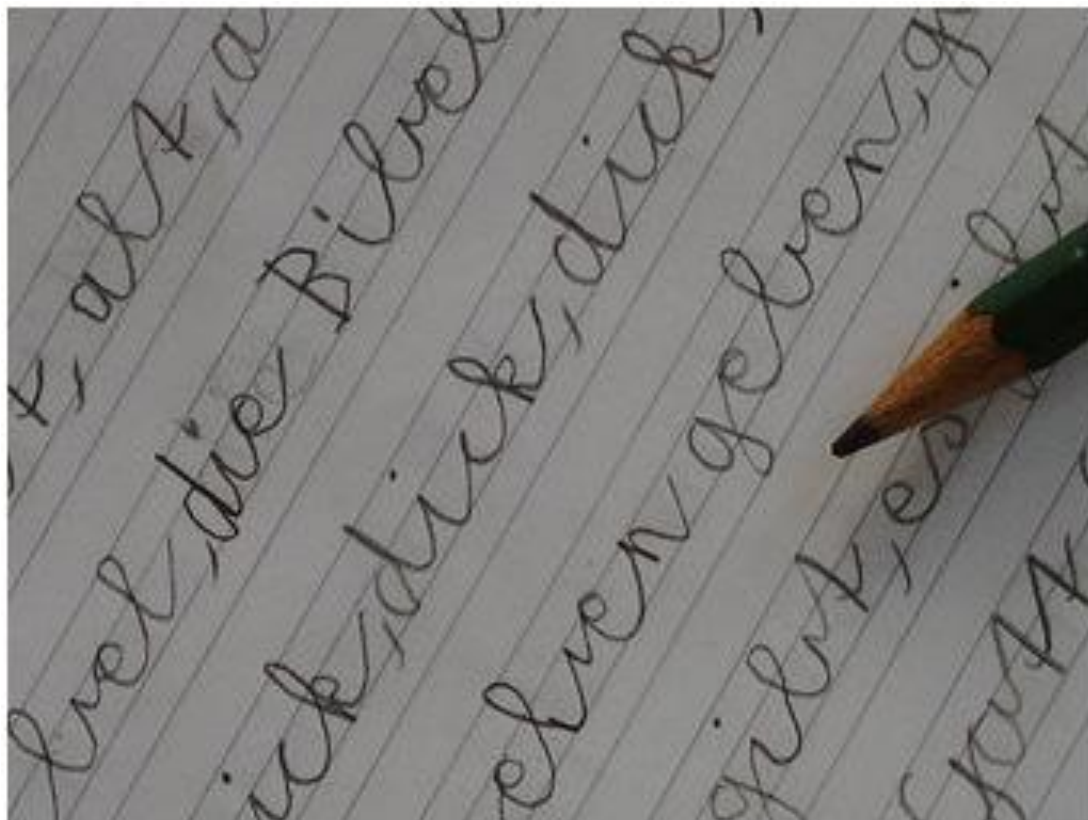 t, alt, a
bel, die Bibel
ick, dick, dick,
eben geben, g
gibt, es